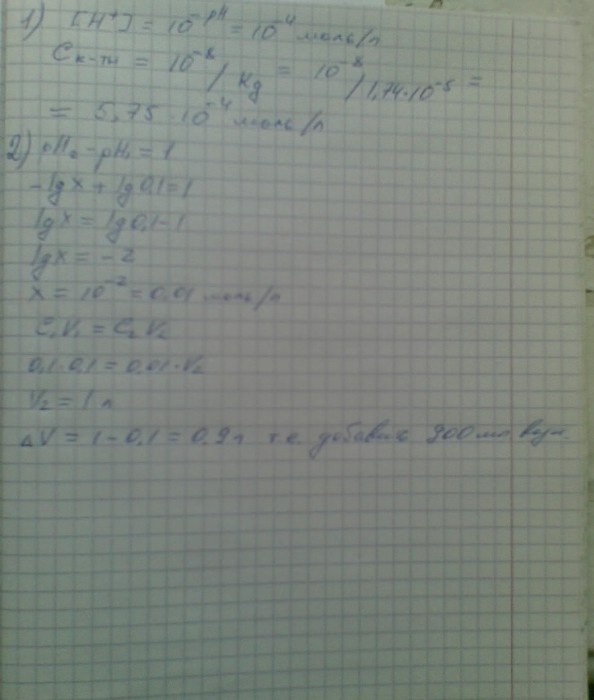 1) [H⁺] = 10^-pH = 10^-4 моль/л
C к-ты = 10^-8 / Kд = 10^-8 / 1,74·10^-5 =
= 5,75·10^-4 моль/л
2) pH₂ - pH₁ = 1
-lg x + lg 0,1 = 1
lg x = lg 0,1 - 1
lg x = -2
x = 10^-2 = 0,01 моль/л
C₁V₁ = C₂V₂
0,1·0,1 = 0,01·V₂
V₂ = 1 л
ΔV = 1 - 0,1 = 0,9 л т.е. добавить 900 мл воды